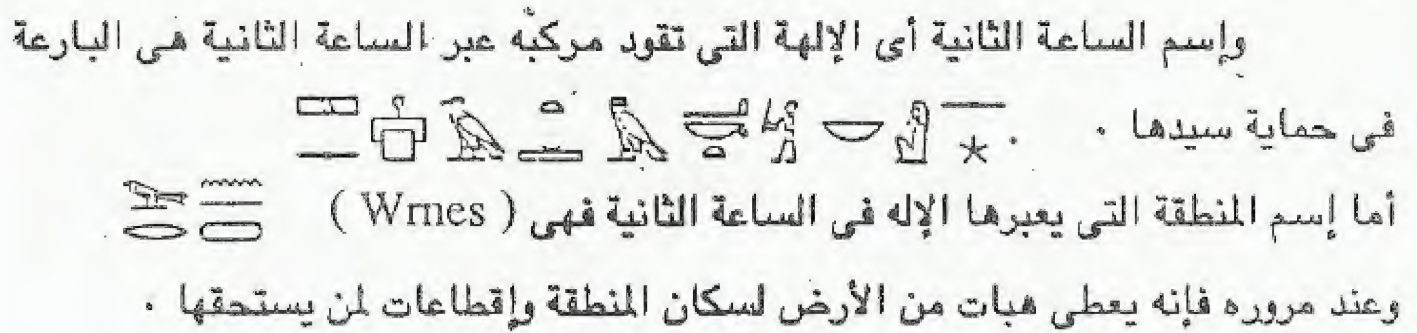 وإسم الساعة الثانية أى الإلهة التى تقود مركبه عبر الساعة الثانية هى البارعة
فى حماية سيدها .
أما إسم المنطقة التى يعبرها الإله فى الساعة الثانية فهى ( Wrnes )
وعند مروره فإنه يعطى هبات من الأرض لسكان المنطقة وإقطاعات لمن يستحقها .